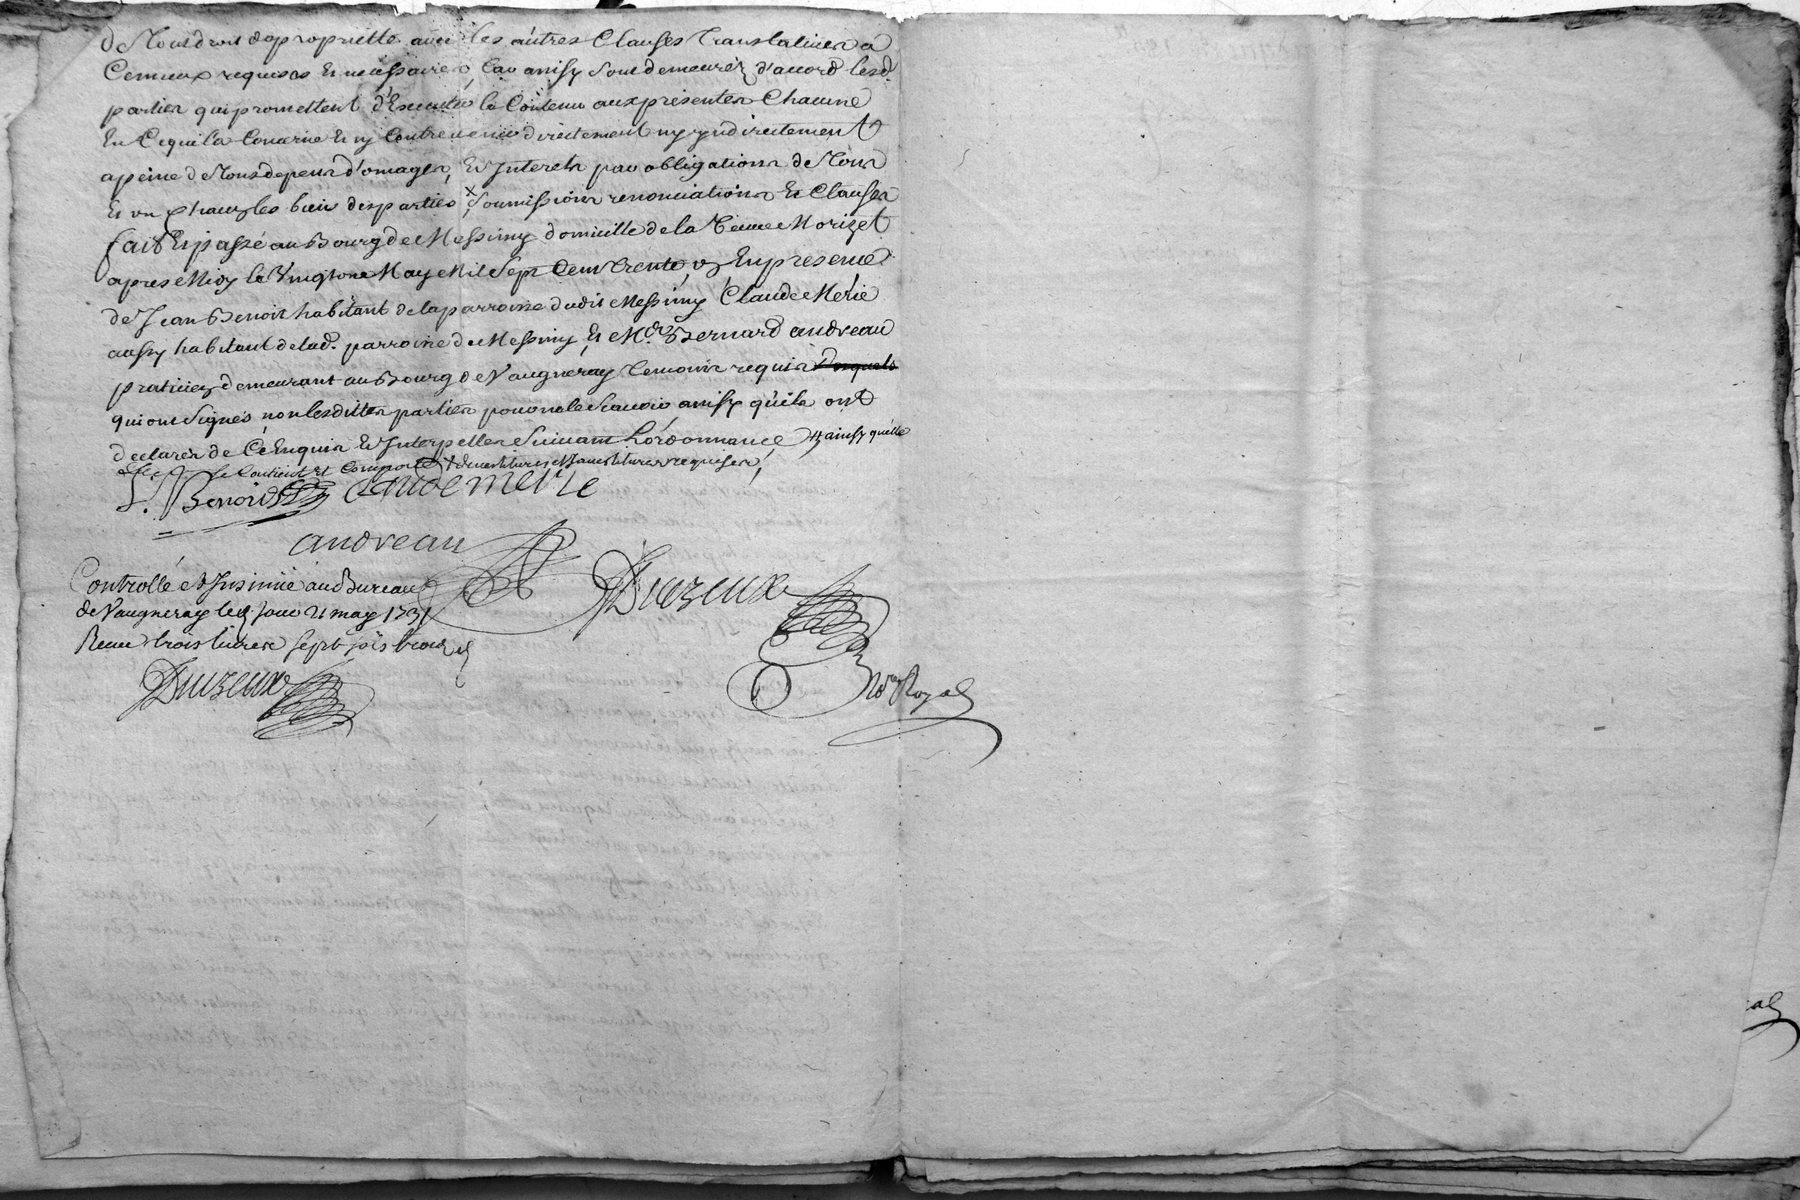 de tous droits de proprietté avec les autres Clauses translatives a
Ce mieux requises et necessaires, Car ainsy sont demeurez d'accord lesd.
parties qui promettent d'Executer le Contenu aux presentes Chacune
En Ce qui la Concerne Et ny Contrevenir directement ny yndirectement
a peine de tous depens d'omages, Et Interets par obligations de tous
Et un chacuns les biens desparties, × soumissions renonciations Et Clauses
fait Et passé au Bourg de Messimy domicille de la veuve Morizet
apres Midy le vingt May Mil Sept Cent trente, Enpresence
de Jean Benoit habitant de la parroisse dudit Messimy Claude Merie
aussy habitant de lad. parroisse de Messimy Et Me. Bernard andreau
praticien demeurant au Bourg de Vaugneray temoins requis
qui ont Signés non lesdittes parties pour ne le Scavoir ainsy qu'ils ont
declarés de Ce Enquis Et Interpellés Suivant l'ordonnance, ainsy quelle
se Contient et Comporte devestitures et Investitures requises,
J. Benoist Claude merie
andreau
Duzeux
Controllé et Insinué au Bureau
de Vaugneray led. jour 21 may 1731
Receu trois livres sept sols
Duzeux
No.re Royal